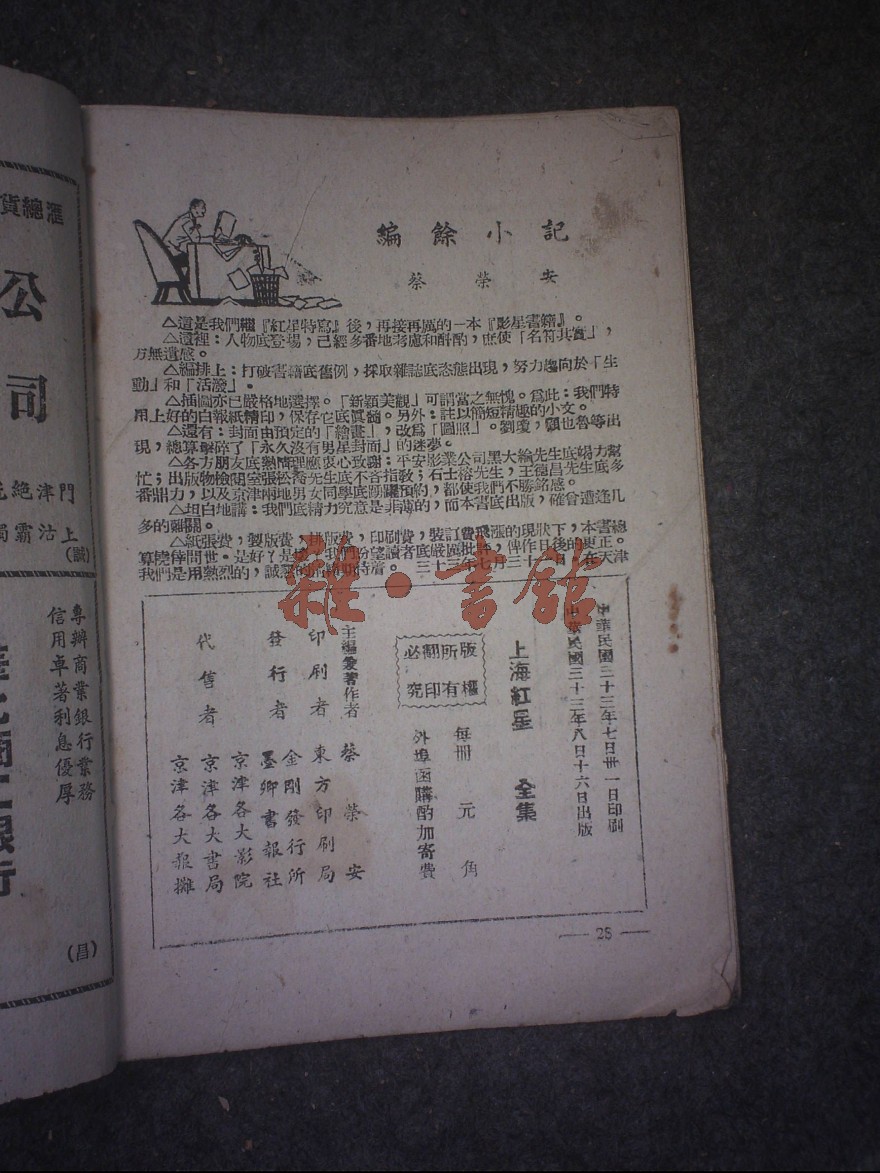 編餘小記
蔡榮安
△這是我們繼『紅星特寫』後，再接再厲的一本『影星書籍』。
△這裡：人物底登場，已經多番地考慮和酙酌，庶使「名符其實」，
方無遺感。
△編排上：打破書籍底舊例，採取雜誌底态態出現，努力趨向於「生
動」和「活潑」。
△插圖亦已嚴格地選擇。「新穎美觀」可謂當之無愧。爲此：我們特
用上好的白報紙精印，保存它底質髓。另外：註以簡短精趣的小文。
△還有：封面由預定的「繪畫」，改爲「圖照」。劉瓊，顧也魯等出
現，總算擊碎了「永久沒有男星封面」的迷夢。
△各方朋友底熱情理應衷心致謝：平安影業公司黑大綸先生底竭力幫
忙；出版物檢閱室張松喬先生底不吝指敎；石士溶先生，王德昌先生底多
番鼎力，以及京津兩地男女同學底踴躍預約，都使我們不勝銘感。
△坦白地講：我們底精力究竟是菲薄的，而本書底出版，確曾遭逢几
多的難關。
△紙張費，製版費，排版費，印刷費，裝訂費飛漲的現狀下，本書總
算僥倖問世。是好？是壞？我們盼望讀者底嚴厲批評，俾作日後的更正。
我們是用熱烈的，誠懇的
期待着。 三十三年七月三十一日，在天津
雜·書館
中華民國三十三年七日卅一日印刷
中華民國三十三年八日十六日出版
上海紅星 全集
版權所有
翻印必究
每冊 元 角
外埠函購酌加寄費
主編爰著作者 蔡榮安
印刷者 東方印刷局
發行者 金剛發行所
墨卿書報社
代售者 京津各大影院
京津各大書局
京津各大報攤
— 28 —
滙總貨
公
司
門津絶
上沽霸
專辦商業銀行業務
信用卓著利息優厚
銀行
(昌)